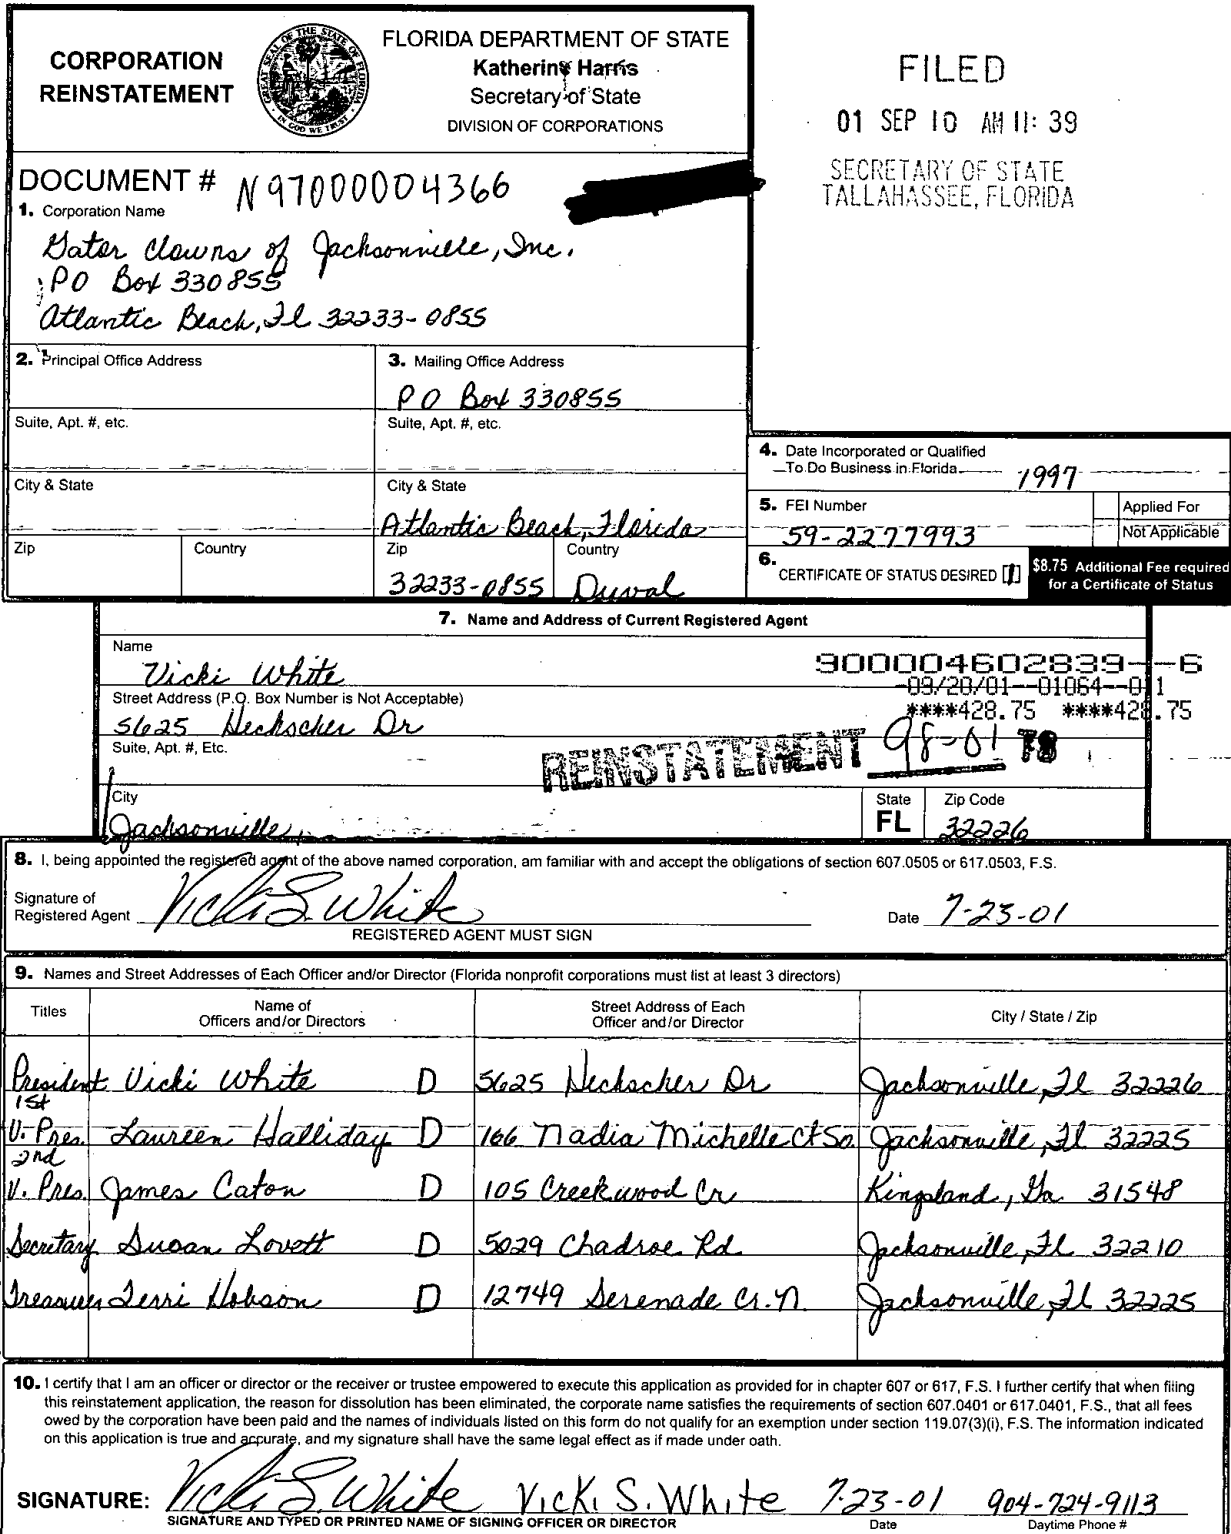 CORPORATION
REINSTATEMENT
GREAT SEAL OF THE STATE OF FLORIDA
IN GOD WE TRUST
FLORIDA DEPARTMENT OF STATE
Katherine Harris
Secretary of State
DIVISION OF CORPORATIONS
FILED
01 SEP 10 AM 11:39
SECRETARY OF STATE
TALLAHASSEE, FLORIDA
DOCUMENT # N97000004366
1. Corporation Name
Gator Clowns of Jacksonville, Inc.
PO Box 330855
Atlantic Beach, Fl 32233-0855
2. Principal Office Address
3. Mailing Office Address
PO Box 330855
Suite, Apt. #, etc.
Suite, Apt. #, etc.
City & State
City & State
Atlantic Beach, Florida
Zip
Country
Zip
32233-0855
Country
Duval
4. Date Incorporated or Qualified
To Do Business in Florida 1997
5. FEI Number
59-2277993
Applied For
Not Applicable
6. CERTIFICATE OF STATUS DESIRED
$8.75 Additional Fee required
for a Certificate of Status
7. Name and Address of Current Registered Agent
Name
Vicki White
900004602839--6
-09/20/01--01064--011
****428.75 ****428.75
Street Address (P.O. Box Number is Not Acceptable)
5625 Heckscher Dr
Suite, Apt. #, Etc.
REINSTATEMENT 98-01 TB
City
Jacksonville,
State
FL
Zip Code
32226
8. I, being appointed the registered agent of the above named corporation, am familiar with and accept the obligations of section 607.0505 or 617.0503, F.S.
Signature of
Registered Agent Vicki S. White
Date 7-23-01
REGISTERED AGENT MUST SIGN
9. Names and Street Addresses of Each Officer and/or Director (Florida nonprofit corporations must list at least 3 directors)
Titles
Name of
Officers and/or Directors
Street Address of Each
Officer and/or Director
City / State / Zip
President Vicki White D 5625 Heckscher Dr Jacksonville, Fl 32226
1st
V. Pres. Laureen Halliday D 166 Nadia Michelle Ct So. Jacksonville, Fl 32225
2nd
V. Pres. James Caton D 105 Creekwood Cr Kingsland, Ga 31548
Secretary Susan Lovett D 5029 Chadroe Rd Jacksonville, Fl 32210
Treasurer Terri Hobson D 12749 Serenade Cr. N Jacksonville, Fl 32225
10. I certify that I am an officer or director or the receiver or trustee empowered to execute this application as provided for in chapter 607 or 617, F.S. I further certify that when filing
this reinstatement application, the reason for dissolution has been eliminated, the corporate name satisfies the requirements of section 607.0401 or 617.0401, F.S., that all fees
owed by the corporation have been paid and the names of individuals listed on this form do not qualify for an exemption under section 119.07(3)(i), F.S. The information indicated
on this application is true and accurate, and my signature shall have the same legal effect as if made under oath.
SIGNATURE: Vicki S. White Vicki S. White 7-23-01 904-724-9113
SIGNATURE AND TYPED OR PRINTED NAME OF SIGNING OFFICER OR DIRECTOR
Date
Daytime Phone #